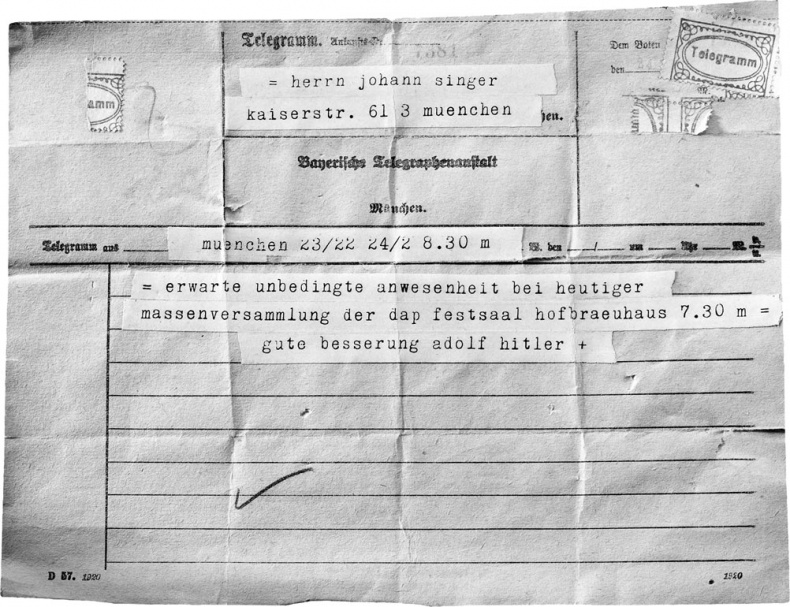 Telegramm.
Dem Boten
den
Telegramm
amm
= herrn johann singer
kaiserstr. 61 3 muenchen
hen.
Bayerische Telegraphenanstalt
München.
Telegramm aus muenchen 23/22 24/2 8.30 m den / um Uhr
= erwarte unbedingte anwesenheit bei heutiger
massenversammlung der dap festsaal hofbraeuhaus 7.30 m =
gute besserung adolf hitler +
D 57. 1920
1920